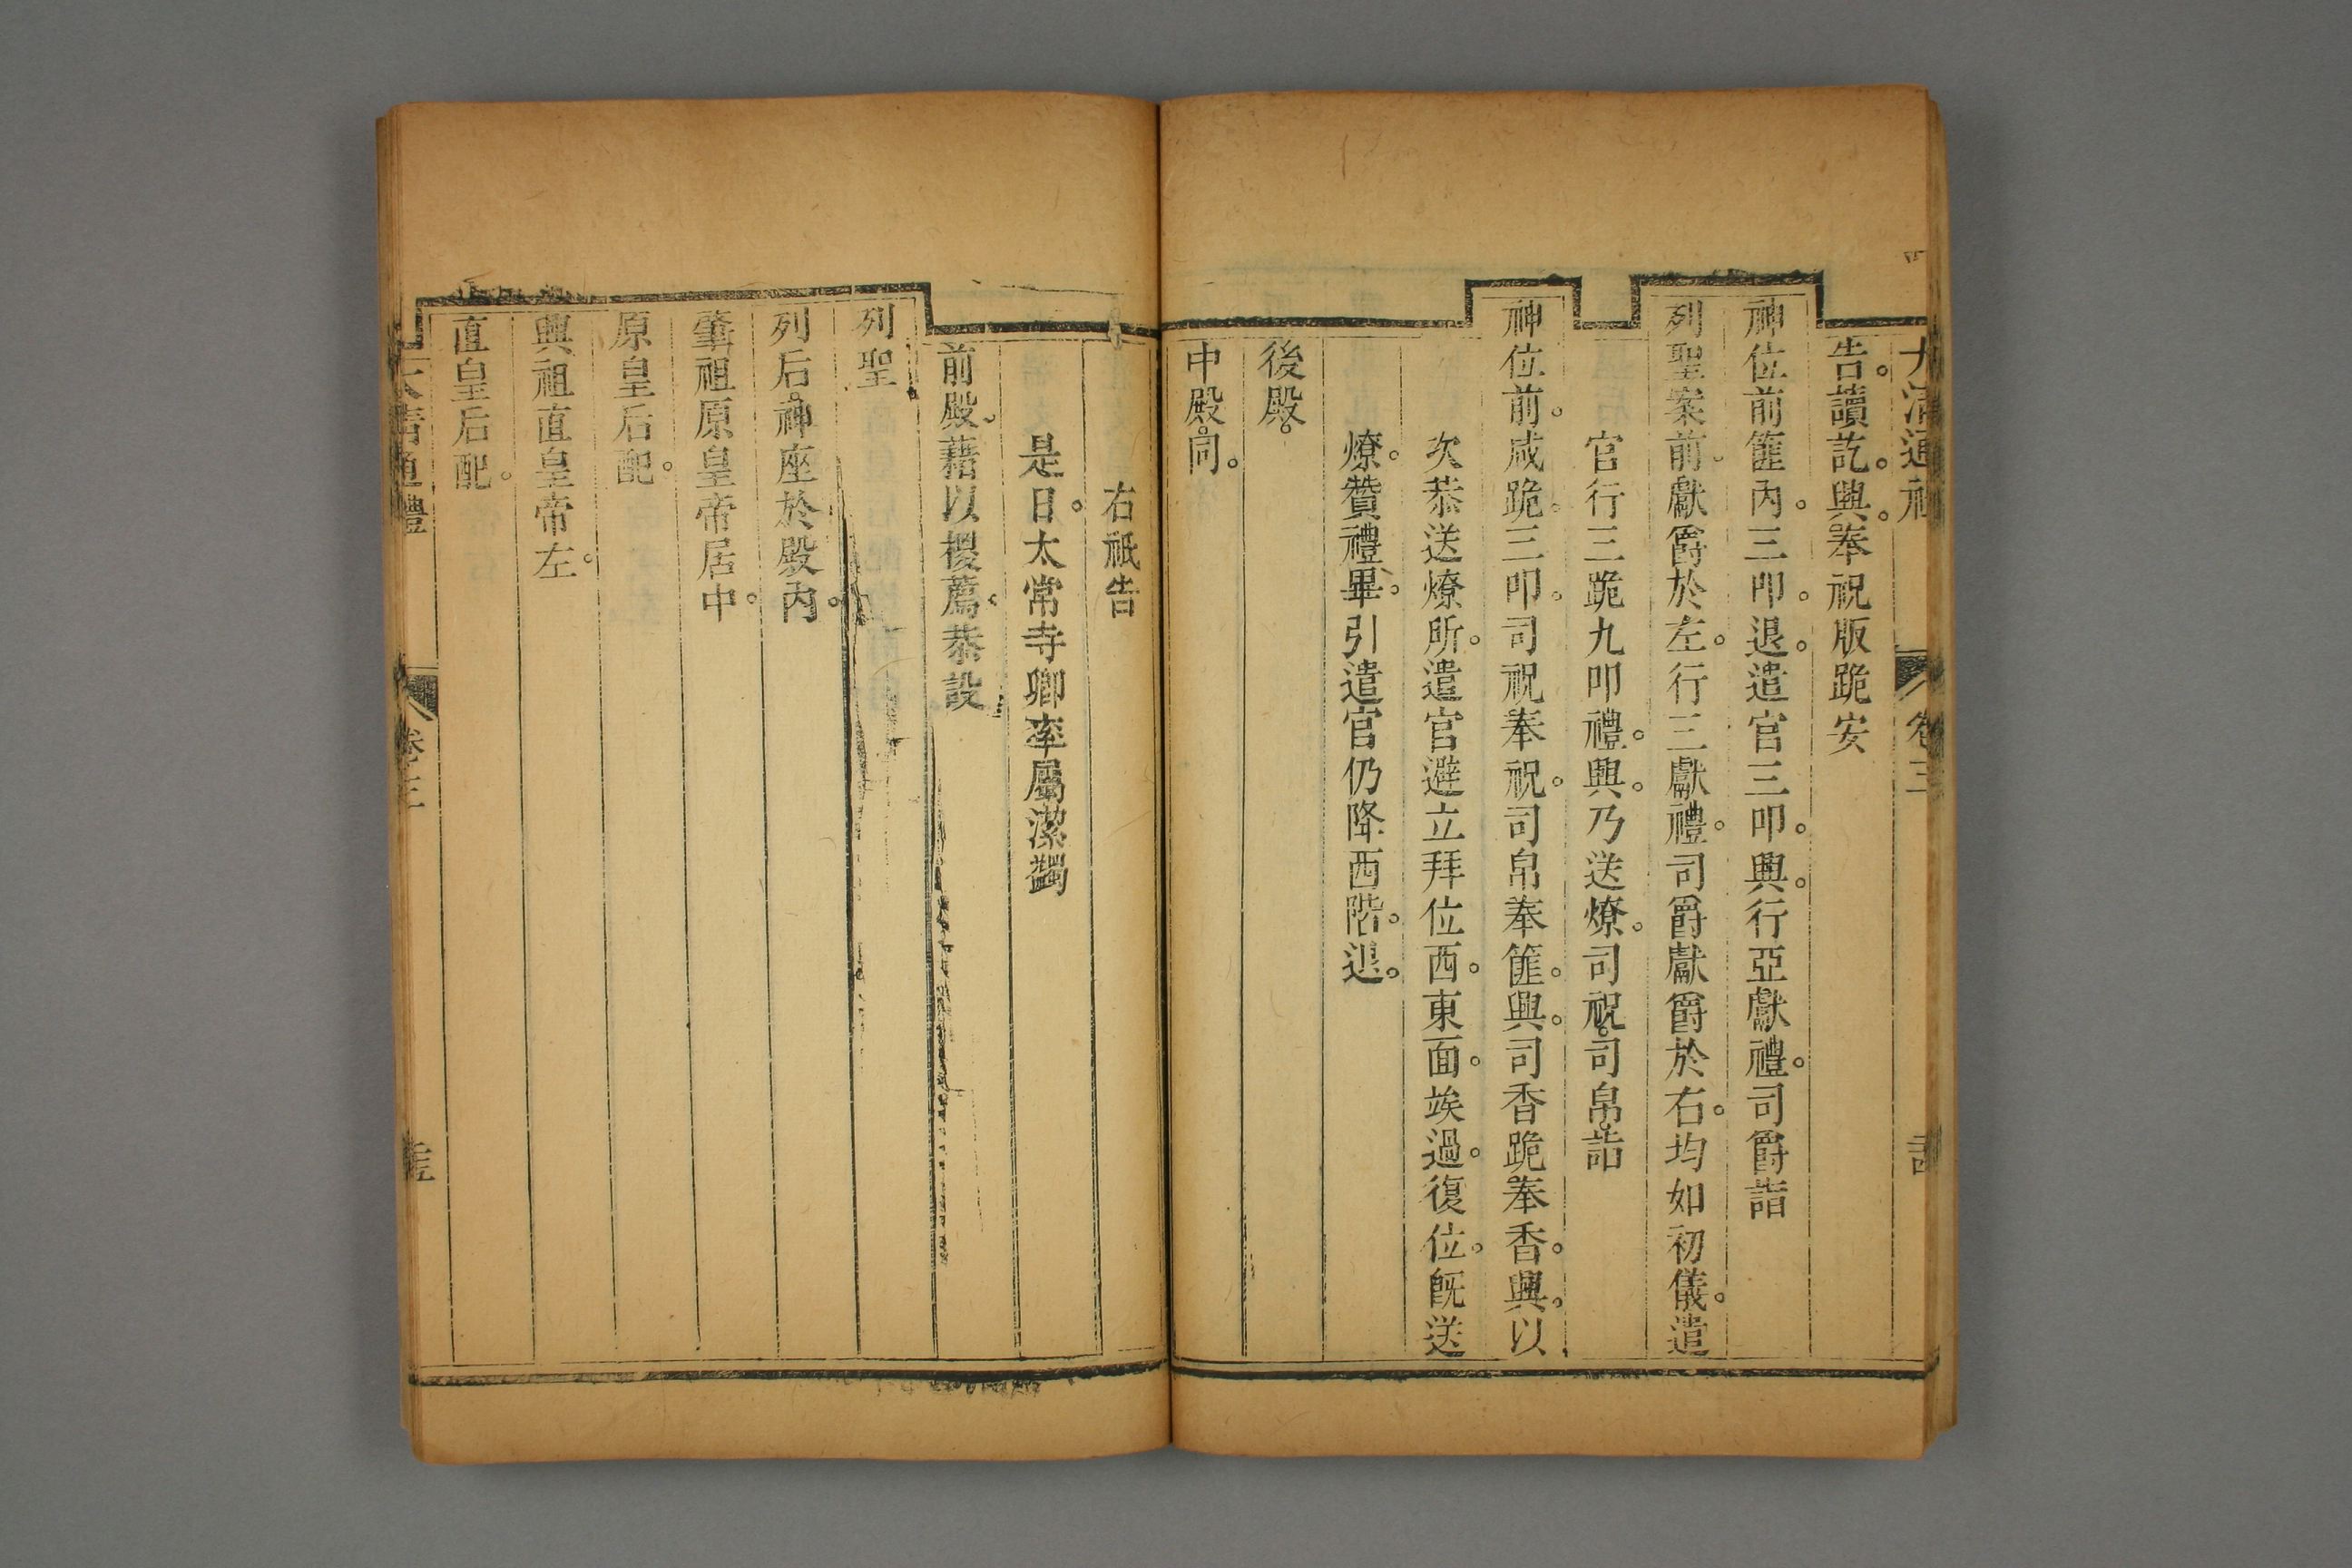 大清通禮 卷三
告。讀訖。興。奉祝版跪安
神位前篚內。三叩。退。遣官三叩。興。行亞獻禮。司爵詣
列聖案前。獻爵於左。行三獻禮。司爵獻爵於右。均如初儀。遣
官行三跪九叩禮。興。乃送燎。司祝。司帛。詣
神位前。咸跪。三叩。司祝奉祝。司帛奉篚。興。司香跪奉香。興。以
次恭送燎所。遣官避立拜位西。東面。竢過。復位。旣送
燎。贊禮畢。引遣官仍降西階。退。
後殿。
中殿。同。
右祇告
是日。太常寺卿率屬潔蠲
前殿。藉以椶薦。恭設
列聖
列后。神座於殿內。
肇祖原皇帝居中。
原皇后配。
興祖直皇帝左。
直皇后配。
大清通禮 卷三